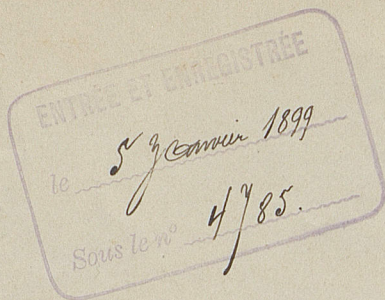 ENTRÉE ET ENREGISTRÉE
le 5 Janvier 1899
Sous le n° 4785.